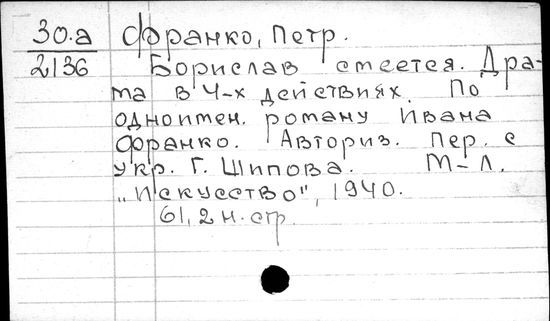 30.а Франко, Петр.
2136 Борислав смеется. Дра-
ма в 4-х действиях. По
одноимен. роману Ивана
Франко. Авториз. пер. с
укр. Г. Шипова. М-Л.
„Искусство", 1940.
61, 2 н. стр.